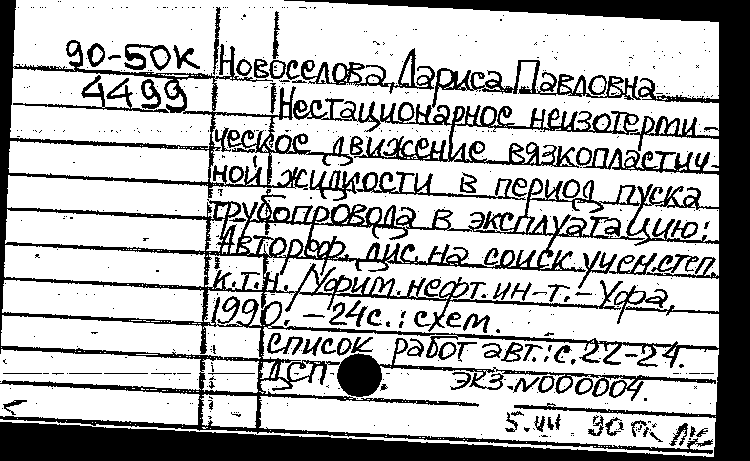 90-50К Новоселова, Лариса Павловна
4499 Нестационарное неизотерми-
ческое движение вязкопластич-
ной жидкости в период пуска
трубопровода в эксплуатацию:
Автореф. дис. на соиск. учен. степ.
к.т.н. /Уфим. нефт. ин-т. – Уфа,
1990. – 24с. : схем.
Список работ авт.: с. 22-24.
ДСП экз. N000004.
90